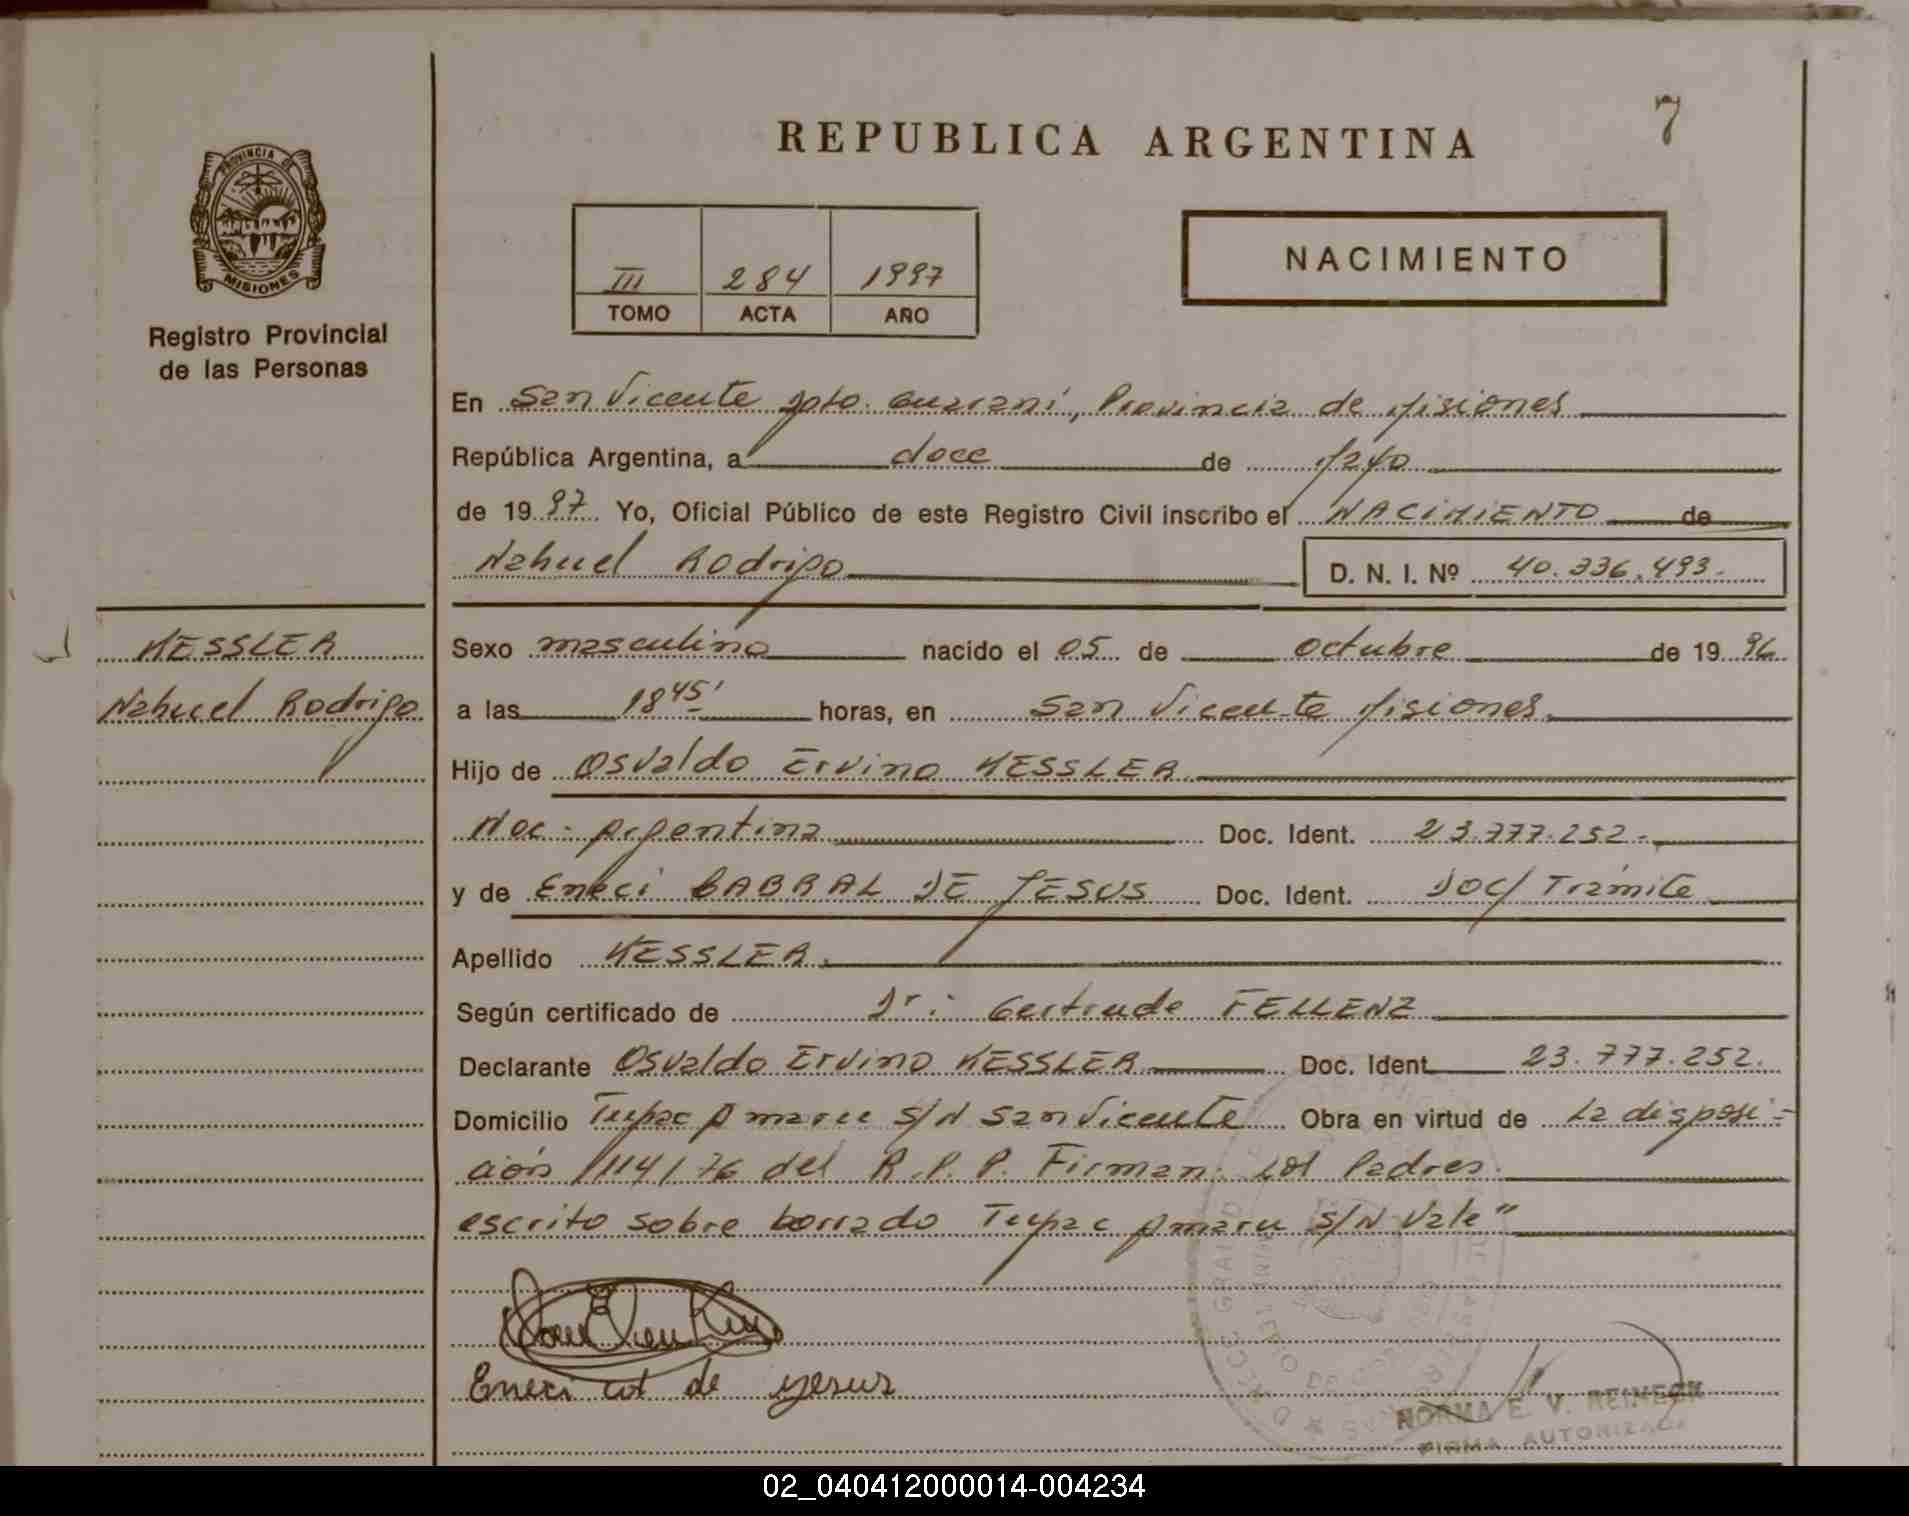 7
REPUBLICA ARGENTINA
PROVINCIA DE
MISIONES
Registro Provincial
de las Personas
III 284 1997
TOMO ACTA AÑO
NACIMIENTO
En San Vicente Dpto. Guaraní, Provincia de Misiones
República Argentina, a doce de Mayo
de 1997 Yo, Oficial Público de este Registro Civil inscribo el NACIMIENTO de
Nahuel Rodrigo D. N. I. Nº 40.336.493.
KESSLER
Nahuel Rodrigo
Sexo masculino nacido el 05 de octubre de 1996
a las 18 45' horas, en San Vicente Misiones.
Hijo de Osvaldo Ervino KESSLER
Nac - Argentina Doc. Ident. 23.777.252.-
y de Eneci CABRAL DE JESUS Doc. Ident. DOC/ Trámite
Apellido KESSLER.
Según certificado de Dr: Gertrude FELLENZ
Declarante Osvaldo Ervino KESSLER Doc. Ident 23.777.252.
Domicilio Tupac Amaru S/N San Vicente Obra en virtud de La disposi-
ción 1114/76 del R.P.P. Firman: Los Padres.
escrito sobre borrado Tupac Amaru S/N Vale"
Eneci de yesus
NORMA E. V. REINECK
FIRMA AUTORIZADA
02_040412000014-004234